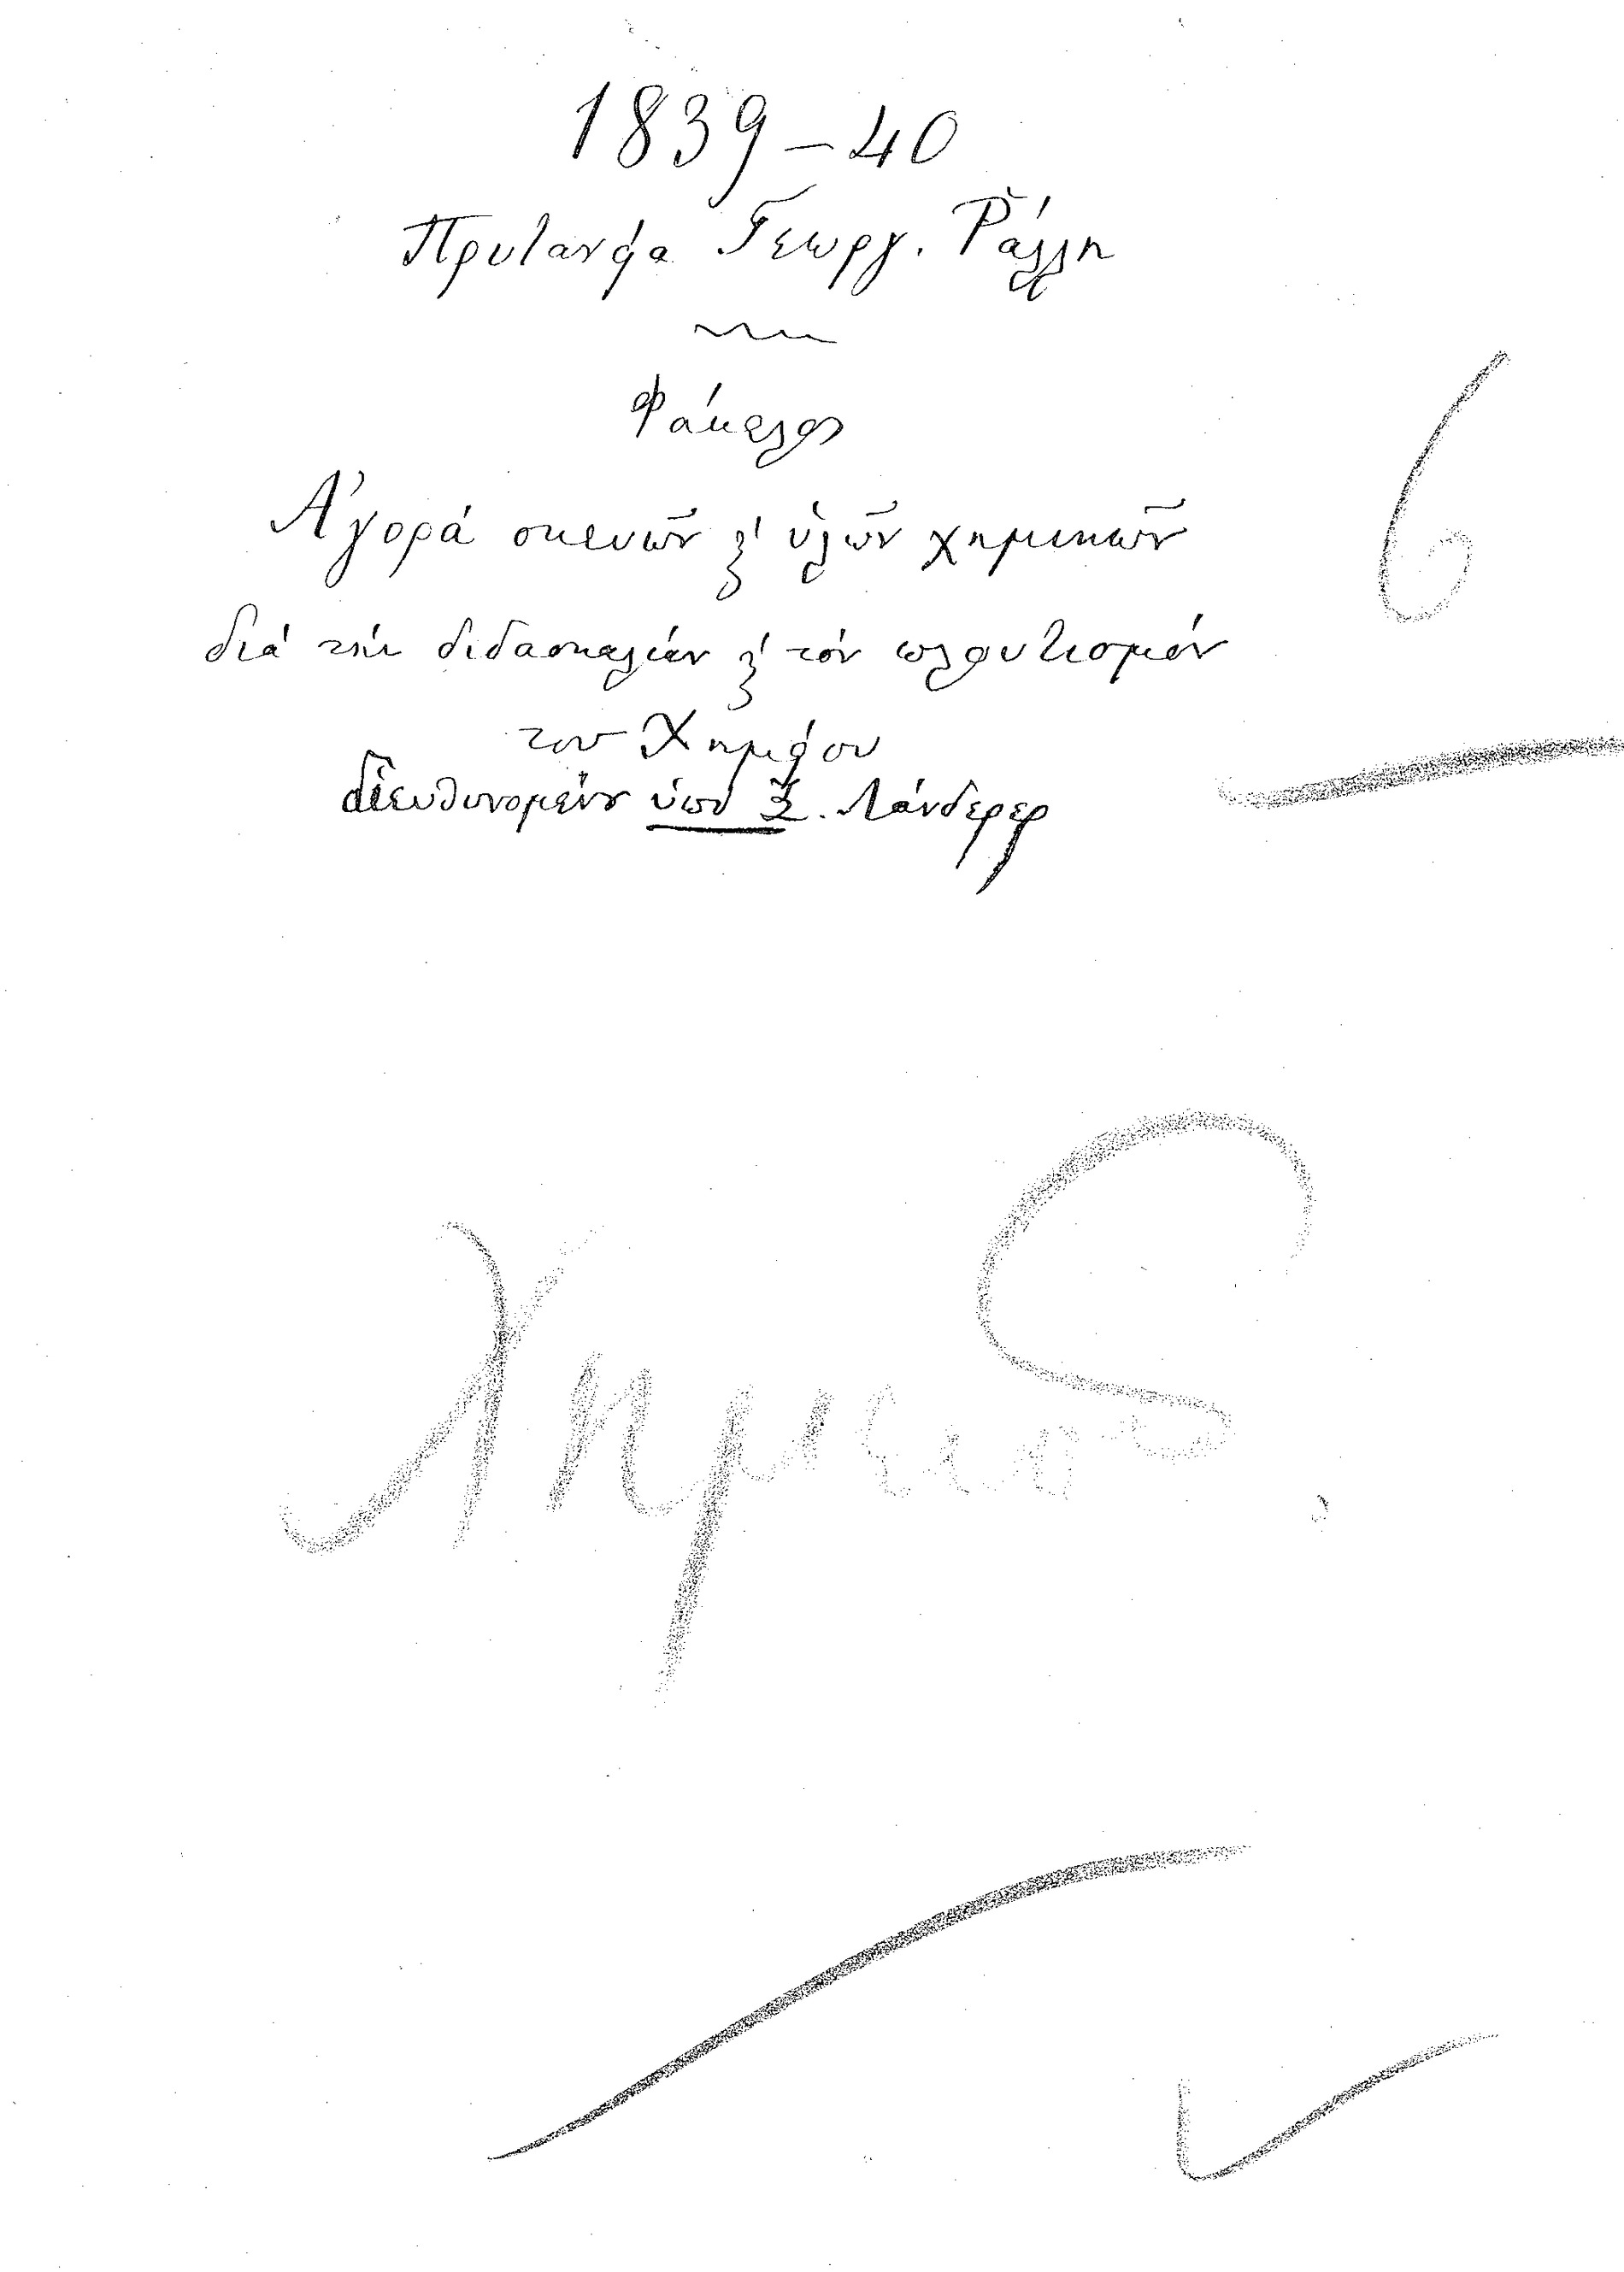 1839-40
Πρυτανεία Γεωργ. Ράλλη
Φάκελος
Ἀγορά σκευῶν ϗ ὑλῶν χημικῶν
διά τήν διδασκαλίαν ϗ τόν πλουτισμόν
του Χημείου
διευθυνομένου ὑπό Ξ. Λάνδερερ
6
Χημείον